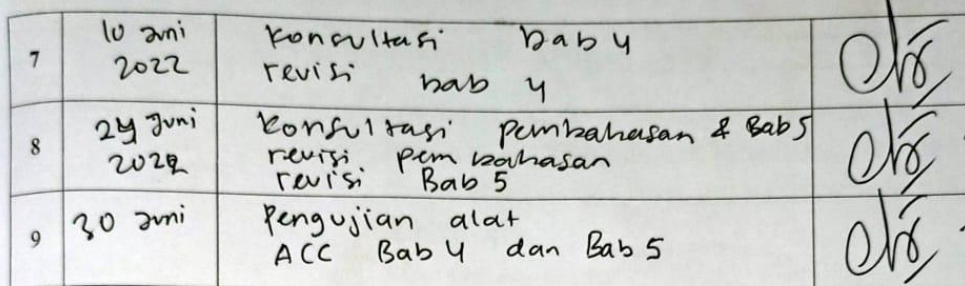 7 10 Juni 2022 Konsultasi bab 4
revisi bab 4
8 24 Juni 2022 Konsultasi pembahasan & Bab 5
revisi pembahasan
revisi Bab 5
9 30 Juni Pengujian alat
ACC Bab 4 dan Bab 5